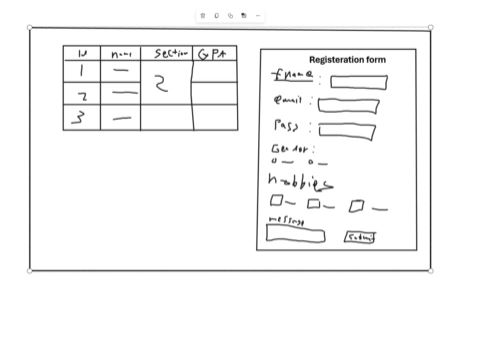 Id name Section GPA
1
2
2
3
Registeration form
fname :
email :
Pass :
Gender :
hobbies
message
Submit